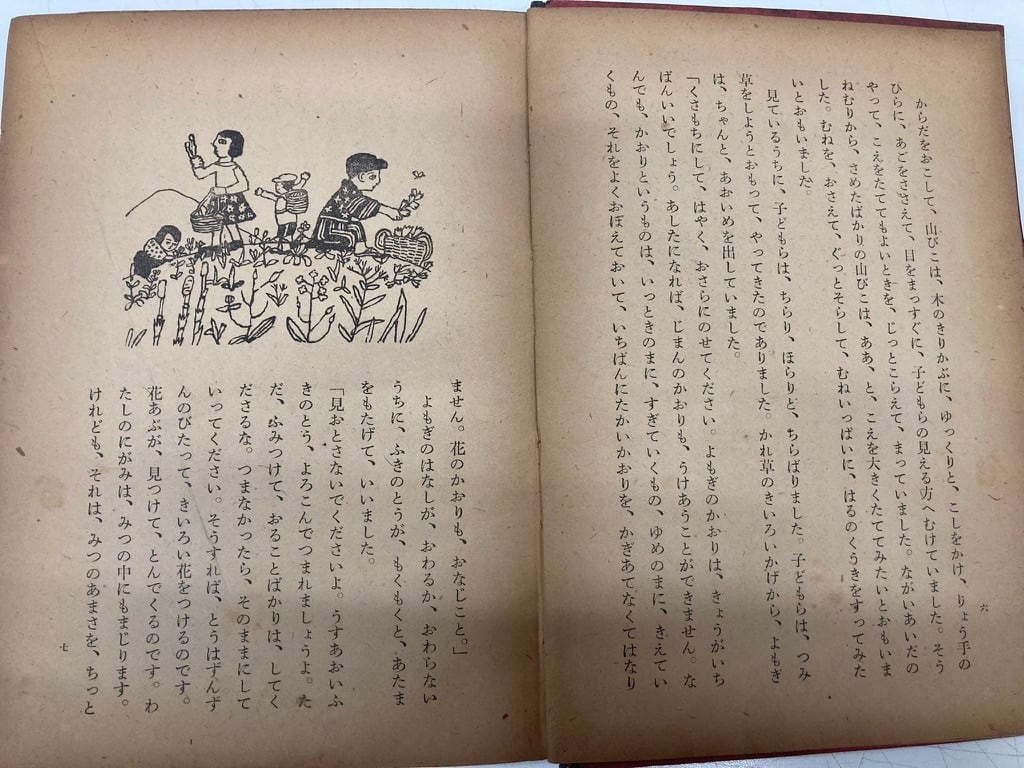 からだをおこして、山びこは、木のきりかぶに、ゆっくりと、こしをかけ、りょう手の
ひらに、あごをささえて、目をまっすぐに、子どもらの見える方へむけていました。そう
やって、こえをたててもよいときを、じっとこらえて、まっていました。ながいあいだの
ねむりから、さめたばかりの山びこは、ああ、と、こえを大きくたててみたいとおもいま
した。むねを、おさえて、ぐっとそらして、むねいっぱいに、はるのくうきをすってみた
いとおもいました。
見ているうちに、子どもらは、ちらり、ほらりと、ちらばりました。子どもらは、つみ
草をしようとおもって、やってきたのでありました。かれ草のきいろいかげから、よもぎ
は、ちゃんと、あおいめを出していました。
「くさもちにして、はやく、おさらにのせてください。よもぎのかおりは、きょうがいち
ばんいいでしょう。あしたになれば、じまんのかおりも、うけあうことができません。な
んでも、かおりというものは、いっときのまに、すぎていくもの、ゆめのまに、きえてい
くもの、それをよくおぼえておいて、いちばんにたかいかおりを、かぎあてなくてはなり
六
ません。花のかおりも、おなじこと。」
よもぎのはなしが、おわるか、おわらない
うちに、ふきのとうが、もくもくと、あたま
をもたげて、いいました。
「見おとさないでくださいよ。うすあおいふ
きのとう、よろこんでつまれましょうよ。た
だ、ふみつけて、おることばかりは、してく
ださるな。つまなかったら、そのままにして
いってください。そうすれば、とうはずんず
んのびたって、きいろい花をつけるのです。
花あぶが、見つけて、とんでくるのです。わ
たしのにがみは、みつの中にもまじります。
けれども、それは、みつのあまさを、ちっと
七